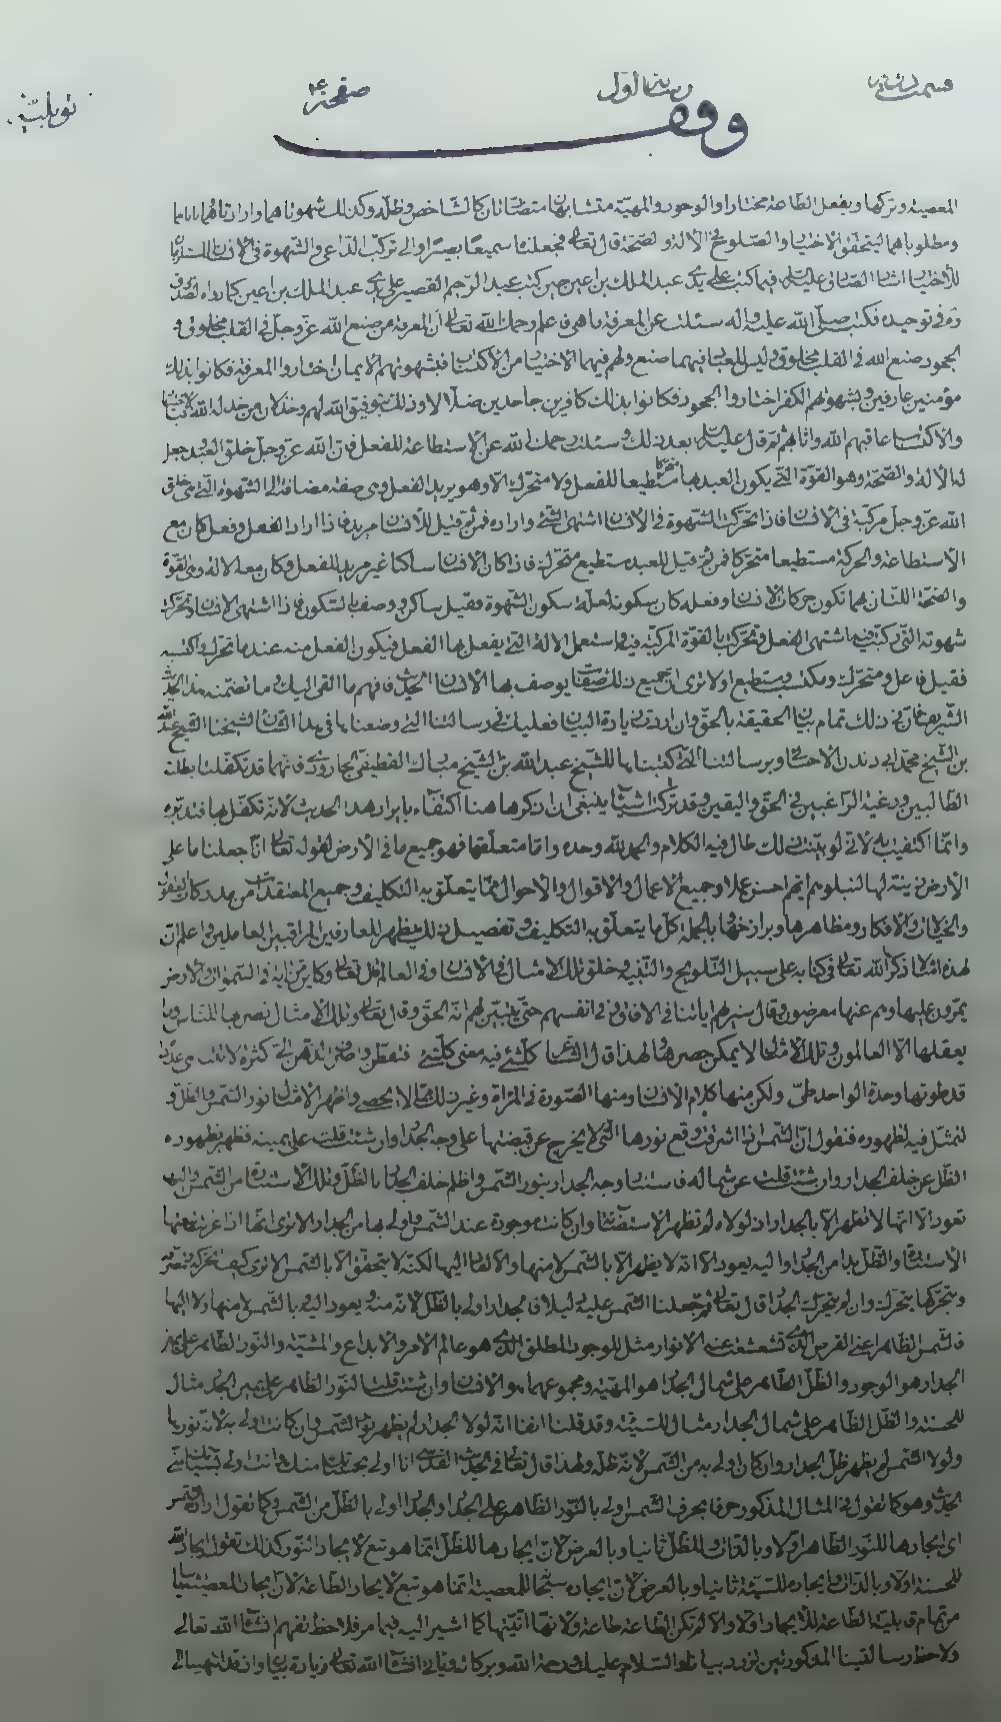 وقف
المعصية وتركها ويفعل الطاعة مختارا والوجود والمهية متشابهان متضادان كالشاخص وظله وكذلك شهوتاهما وارادتاهما
ومطلوباهما ليتحقق الاختيار والصلوح الالة والصحة قال تعالى فجعلناه سميعا بصيرا والى تركب الداعي والشهوة في الانسان
للاختيار اشار الصادق عليه السلام فيما كتب على يدي عبد الملك بن اعين حين كتب عبد الرحيم القصير على يدي عبد الملك بن اعين كما رواه الصدوق
ره في توحيده فكتب صلى الله عليه واله سئلت عن المعرفة ما هي فاعلم رحمك الله تعالى ان المعرفة من صنع الله عز وجل في القلب مخلوق و
الجحود صنع الله في القلب مخلوق وليس للعباد فيهما صنع ولهم فيهما الاختيار من الاكتساب فبشهوتهم الايمان اختاروا المعرفة فكانوا بذلك
مؤمنين عارفين وبشهوتهم الكفر اختاروا الجحود فكانوا بذلك كافرين جاحدين ضلالا وذلك بتوفيق الله لهم وخذلان من خذله الله
والاكتساب عاقبهم الله واثابهم ثم قال عليه السلام بعد ذلك وسئلت رحمك الله عن الاستطاعة للفعل فان الله عز وجل خلق العبد وجعل
له الالة والصحة وهو القوة التي يكون العبد بها متحركا مستطيعا للفعل ولا متحرك الا وهو يريد الفعل وهي صفة مضافة الى الشهوة التي هي خلق
الله عز وجل مركبة في الانسان فاذا تحركت الشهوة في الانسان اشتهى الشيء واراده فمن ثم قيل للانسان مريد فاذا اراد الفعل وفعل كان مع
الاستطاعة والحركة مستطيعا متحركا فمن ثم قيل للعبد مستطيع متحرك فاذا كان الانسان ساكنا غير مريد للفعل وكان معه الالة وهي القوة
والصحة اللتان بهما تكون حركات الانسان وفعله كان سكونه لعلة سكون الشهوة فقيل ساكن ووصف بالسكون فاذا اشتهى الانسان وتحركت
شهوته التي ركبت فيه اشتهى الفعل وتحركت بالقوة المركبة فيه واستعمل الالة التي يفعل بها الفعل فيكون الفعل منه عندما تحرك واكتسبه
فقيل فاعل ومتحرك ومكتسب ومستطيع اولا ترى ان جميع ذلك صفات يوصف بها الانسان الحديث فافهم ما القى اليك وما تضمنه هذا الحديث
الشريف فان في ذلك تمام بيان الحقيقة بالحق وان اردت زيادة البيان فعليك في رسالتنا التي وضعناها في هذا الشان لشيخنا الشيخ عبد الله
بن الشيخ محمد ابن دندن الاحسائي وبرسالتنا التي كتبناها للشيخ عبد الله بن الشيخ مبارك القطيفي الجارودي فانهما قد تكفلتا بطلبة
الطالبين ورغبة الراغبين في الحق واليقين وقد تركت اشياء ينبغي ان اذكرها هنا اكتفاء بايراد هذا الحديث لانه تكفل بها فتدبره
وانما اكتفيت به لاني لو بينت ذلك طال فيه الكلام والحمد لله وحده واما متعلقها فهو جميع ما في الارض لقوله تعالى انا جعلنا ما على
الارض زينة لها لنبلوهم ايهم احسن عملا وجميع الاعمال والاقوال والاحوال مما يتعلق به التكليف وجميع المعتقدات
والخيالات والافكار ومظاهرها وبرازخها وبالجملة كل ما يتعلق به التكليف وتفصيل ذلك يظهر للعارفين المراقبين العاملين واعلم ان
لهذه امثالا ذكر الله تعالى في كتابه على سبيل التلويح والتنبيه وخلق تلك الامثال في الانسان وفي العالم قال تعالى وكاين من اية في السموات والارض
يمرون عليها وهم عنها معرضون وقال سنريهم اياتنا في الافاق وفي انفسهم حتى يتبين لهم انه الحق وقال تعالى وتلك الامثال نضربها للناس وما
يعقلها الا العالمون وتلك الامثال لا يمكن حصرها لهذا قال الشاعر كل شيء فيه معنى كل شيء فتفطن واصرف الذهن الي كثرة لا تتناهى عددا
قد طوتها وحدة الواحد طي ولكن منها كلام الانسان ومنها الصورة في المراة وغير ذلك مما لا يحصى واظهر الامثال نور الشمس والظل و
لنمثل فيه لظهوره فنقول ان الشمس اذا اشرقت وقع نورها الذي لا يخرج عن قبضتها على وجه الجدار وان شئت قلت على يمينه فظهر بظهوره
الظل عن خلف الجدار وان شئت قلت عن شماله فاستنار وجه الجدار بنور الشمس واظلم خلف الجدار بالظل وتلك الاستنارة من الشمس واليها
تعود الا انها لا تظهر الا بالجدار اذ لولاه لم تظهر الاستضاءة وان كانت موجودة عند الشمس واولى بها من الجدار الا ترى انها اذا غربت تبعتها
الاستنارة والظل بدا من الجدار واليه يعود الا انه لا يظهر الا بالشمس لا منها والا لعاد اليها لكنه لا يتحقق الا بالشمس الا ترى كيف
وبتحركها يتحرك وان لم يتحرك الجدار قال تعالى ثم جعلنا الشمس عليه دليلا فالجدار اولى بالظل لانه منه ويعود اليه بالشمس لا منها ولا اليها
فالشمس الظاهرة اعني القرص الذي تشعشعت عنه الانوار مثل للوجود المطلق الذي هو عالم الامر والابداع والمشية والنور الظاهر على يمين
الجدار هو الوجود والظل الظاهر على شمال الجدار هو المهية ومجموعهما هو الانسان وان شئت قلت النور الظاهر على يمين الجدار مثال
للحسنة والظل الظاهر على شمال الجدار مثال للسيئة وقد قلنا انفا انه لولا الجدار لم يظهر نور الشمس وان كانت اولى به لانه نورها
ولولا الشمس لم يظهر ظل الجدار وان كان اولى به من الشمس لانه ظله ولهذا قال تعالى في الحديث القدسي انا اولى بحسناتك منك وانت اولى بسيئاتك مني
الحديث وهو كما نقول في المثال المذكور حرفا بحرف الشمس اولى بالنور الظاهر على الجدار والجدار اولى بالظل من الشمس وكما نقول اراد الشمس
اي ايجادها للنور الظاهر اولا وبالذات وللظل ثانيا وبالعرض لان ايجادها للظل انما هو تبع لايجاد النور كذلك نقول ايجاد الله
للحسنة اولا وبالذات وايجاده للسيئة ثانيا وبالعرض لان ايجاده سبحانه للمعصية انما هو تبع لايجاد الطاعة لان ايجاد المعصية
من تمام قابلية الطاعة للايجاد اولا والا لم تكن الطاعة طاعة ولا انيتها كما اشير اليه فيما مر فلاحظ تفهم انشاء الله تعالى
ولاحظ رسالتينا المذكورتين تزدد بيانا والسلام عليك ورحمة الله وبركاته وياتي انشاء الله تعالى زيادة بيان